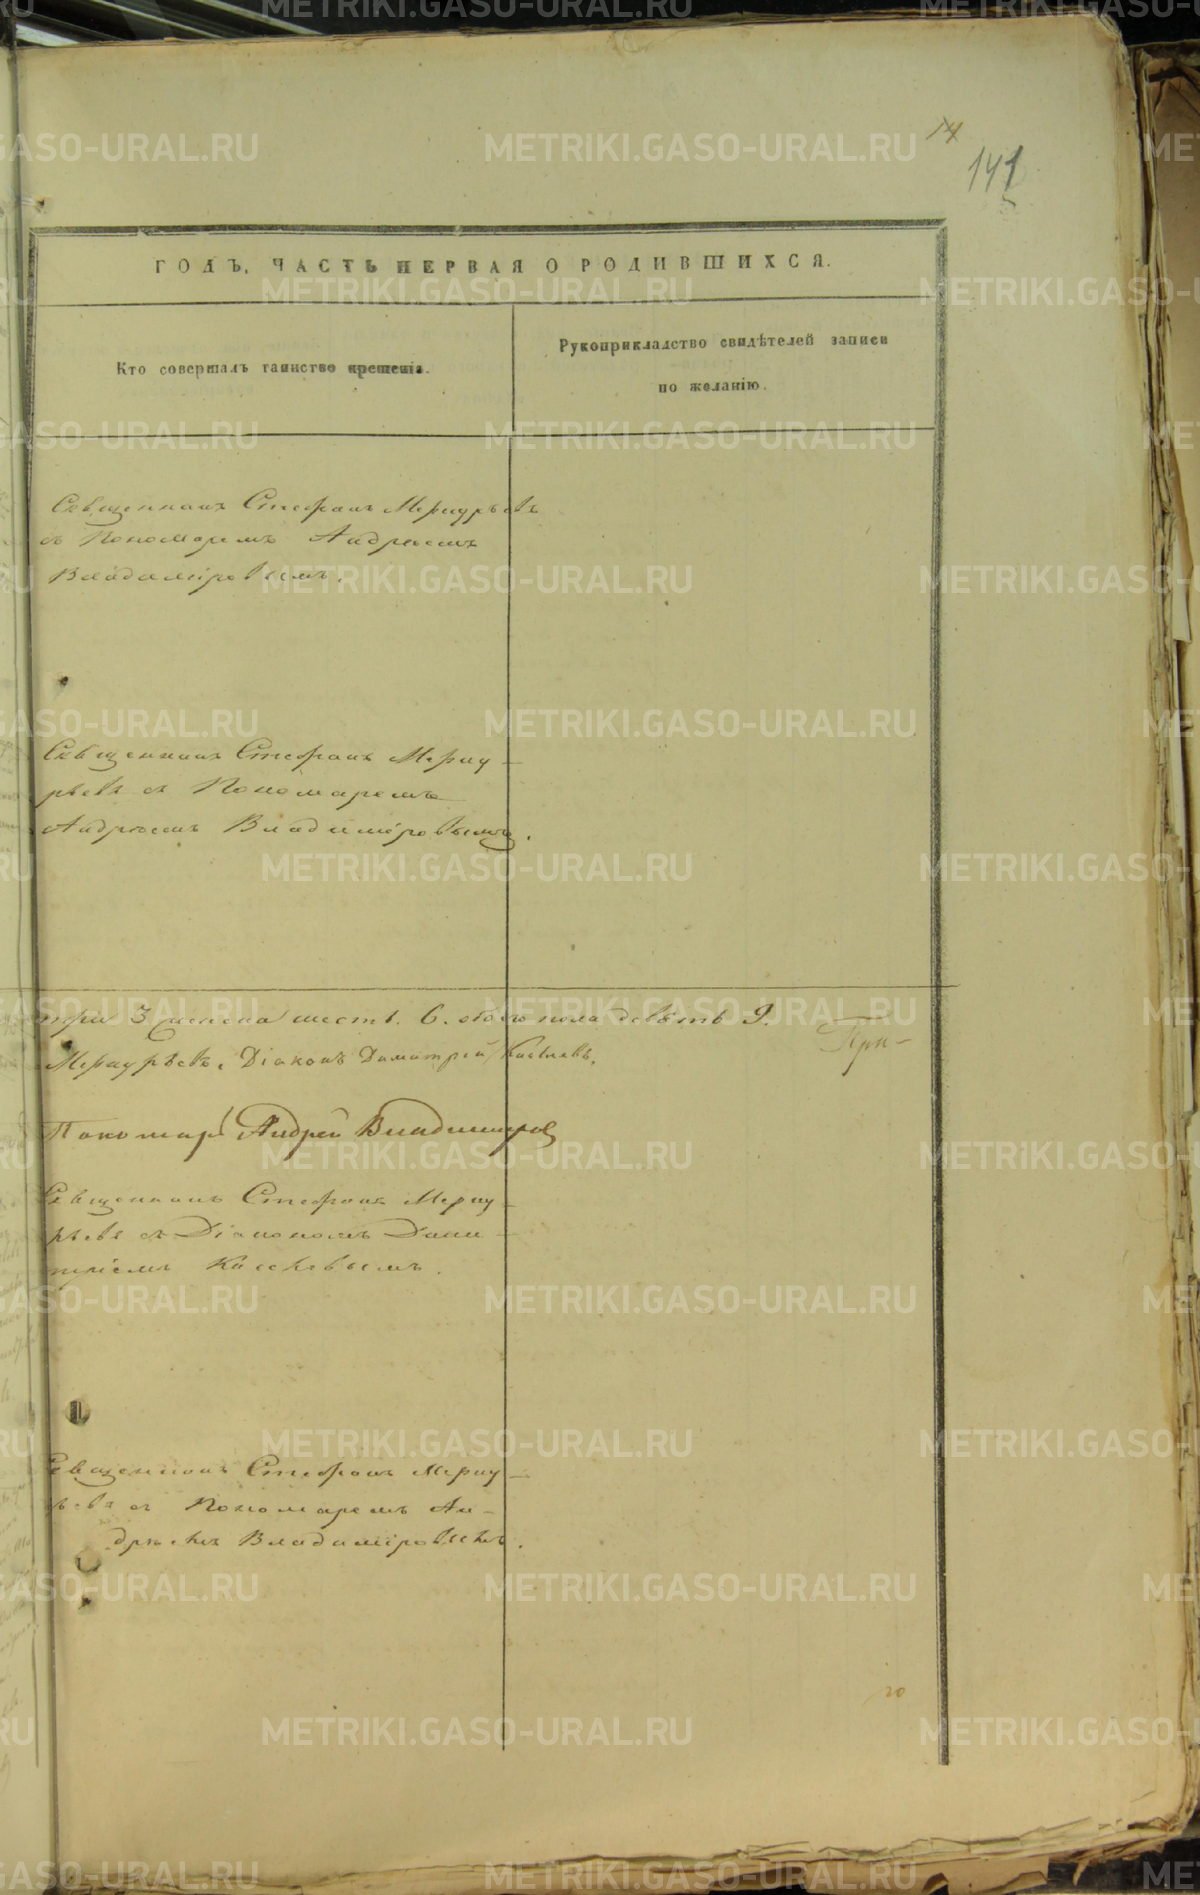 14
141
ГОДЪ, ЧАСТЬ ПЕРВАЯ О РОДИВШИХСЯ.
Кто совершалъ таинство крещенія.
Рукоприкладство свидѣтелей записи
по желанію.
Священникъ Стефанъ Меркурьевъ
съ Пономаремъ Андреемъ
Владиміровымъ.
Священникъ Стефанъ Мерку-
рьевъ съ Пономаремъ
Андреемъ Владиміровымъ.
три 3 женска шесть. 6. обоего пола девять 9.
Меркурьевъ. Діаконъ Димитрій
При-
Пономарь Андрей Владимиров
Священникъ Стефанъ Мерку-
рьевъ съ Діакономъ Дими-
тріемъ
Священникъ Стефанъ Мерку-
рьевъ съ Пономаремъ Ан-
дреемъ Владиміровымъ.
20
METRIKI.GASO-URAL.RU